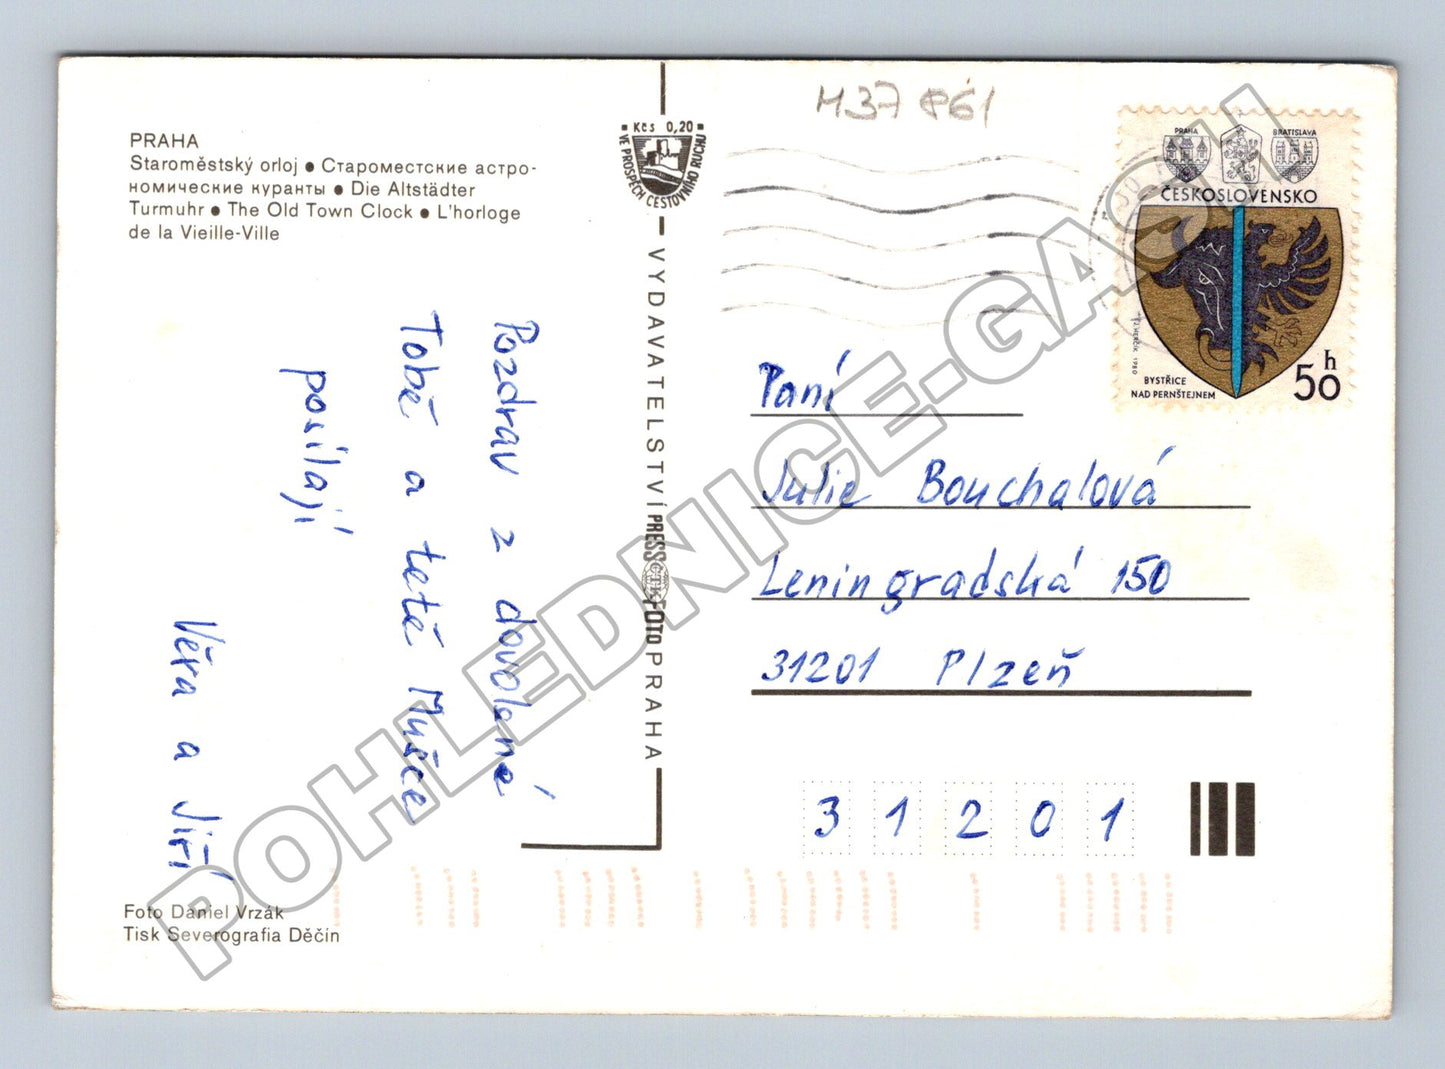 PRAHA
Staroměstský orloj ● Староместские астро-
номические куранты ● Die Altstädter
Turmuhr ● The Old Town Clock ● L'horloge
de la Vieille-Ville
Kčs 0,20
VE PROSPĚCH CESTOVNÍHO RUCHU
VYDAVATELSTVÍ PRESSFOTO PRAHA
ČTK
Pozdrav z dovolené
Tobě a tetě Mušce
posílají
Věra a Jiří
Foto Daniel Vrzák
Tisk Severografia Děčín
M37 861
PRAHA
BRATISLAVA
ČESKOSLOVENSKO
J. HERČÍK 1980
BYSTŘICE
NAD PERNŠTEJNEM
50 h
Paní
Julie Bouchalová
Leningradská 150
31201 Plzeň
3 1 2 0 1
POHLEDNICE-GASU